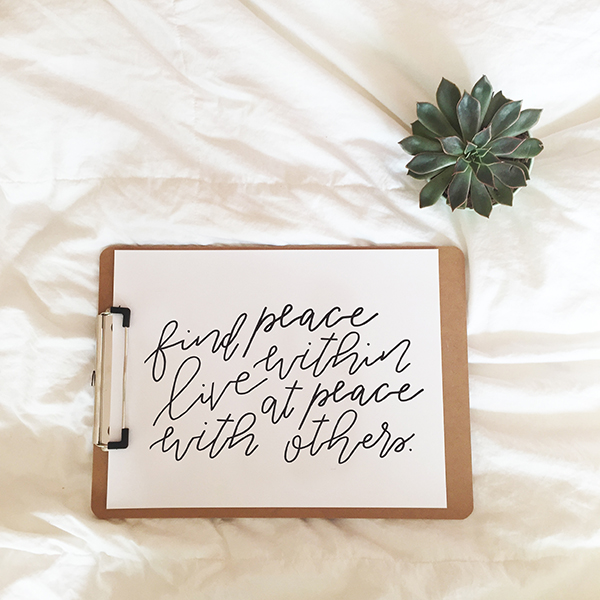 find peace
within
live at peace
with others.